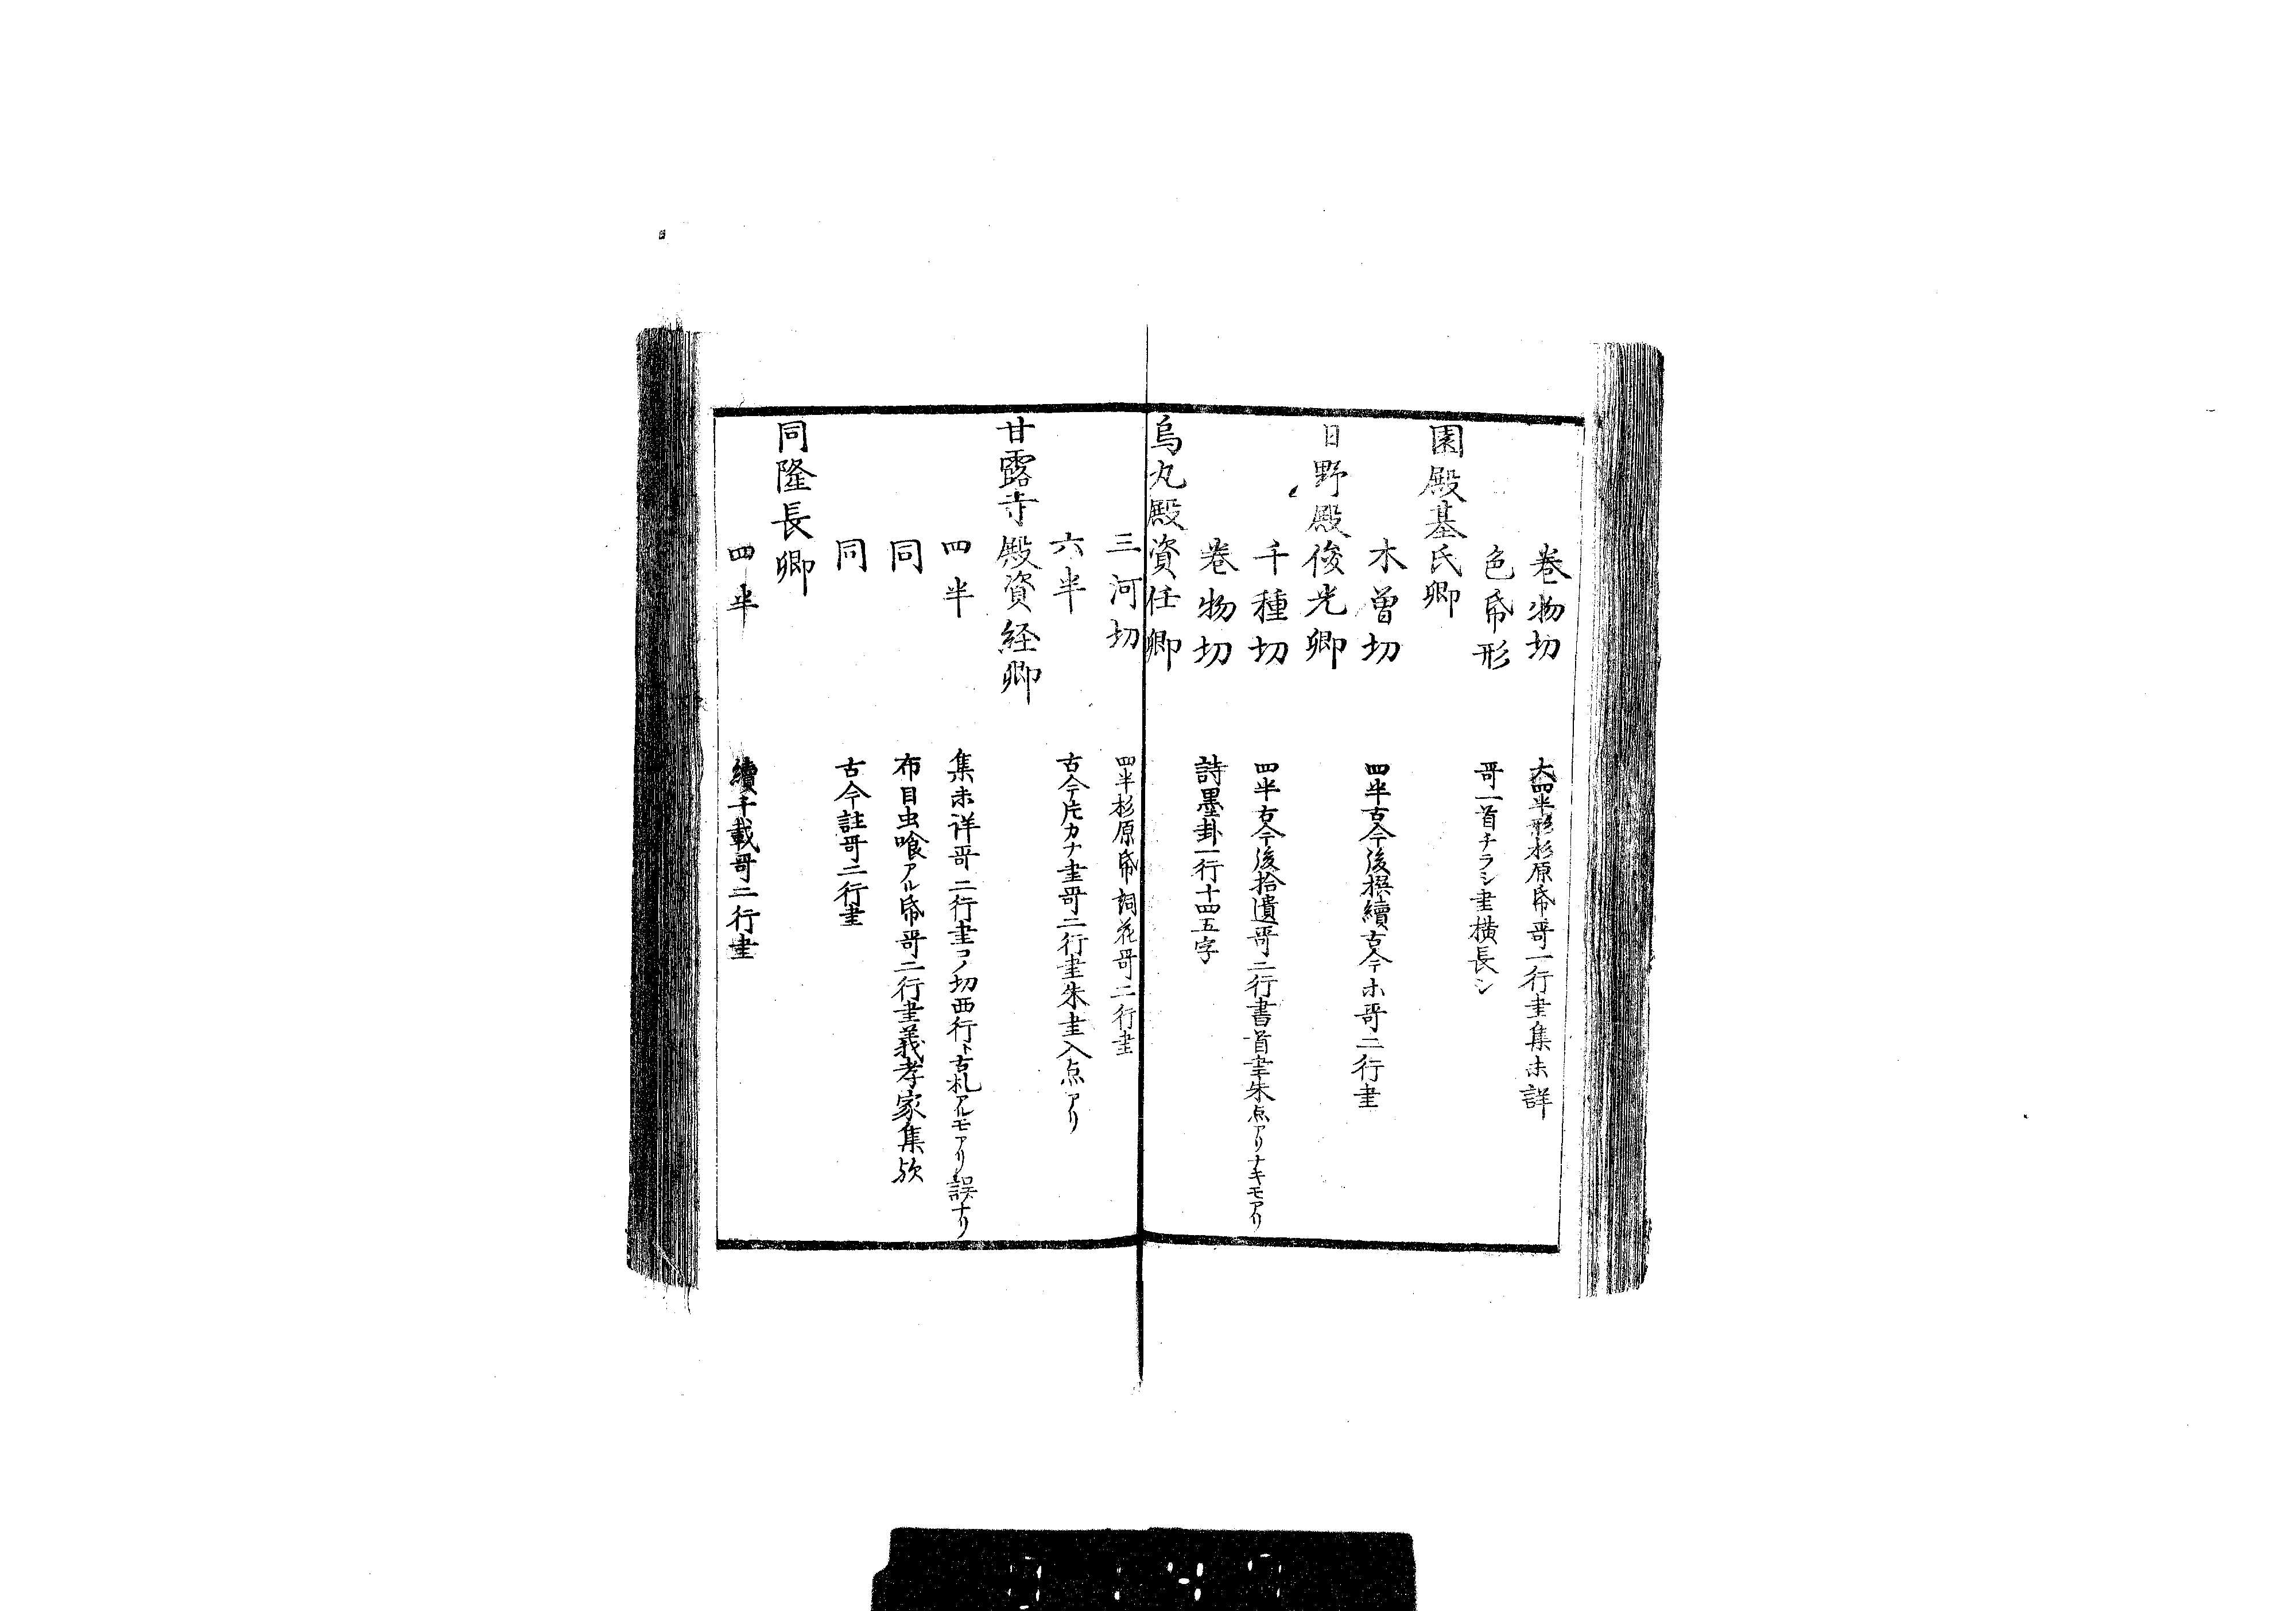 巻物切　大四半形杉原帋哥一行書集未詳
色帋形　哥一首チラシ書横長シ
園殿基氏卿
木曽切　四半古今後撰續古今ホ哥二行書
日野殿俊光卿
千種切　四半古今後拾遺哥二行書首書朱点アリナキモアリ
巻物切　詩墨卦一行十四五字
烏丸殿資任卿
三河切　四半杉原帋詞花哥二行書
六半　古今片カナ書哥二行書朱書入点アリ
甘露寺殿資経卿
四半　集未详哥二行書コノ切西行ト古札アルモアリ誤ナリ
同　布目虫喰アル帋哥二行書義孝家集欤
同　古今註哥二行書
同隆長卿
四半　續千載哥二行書